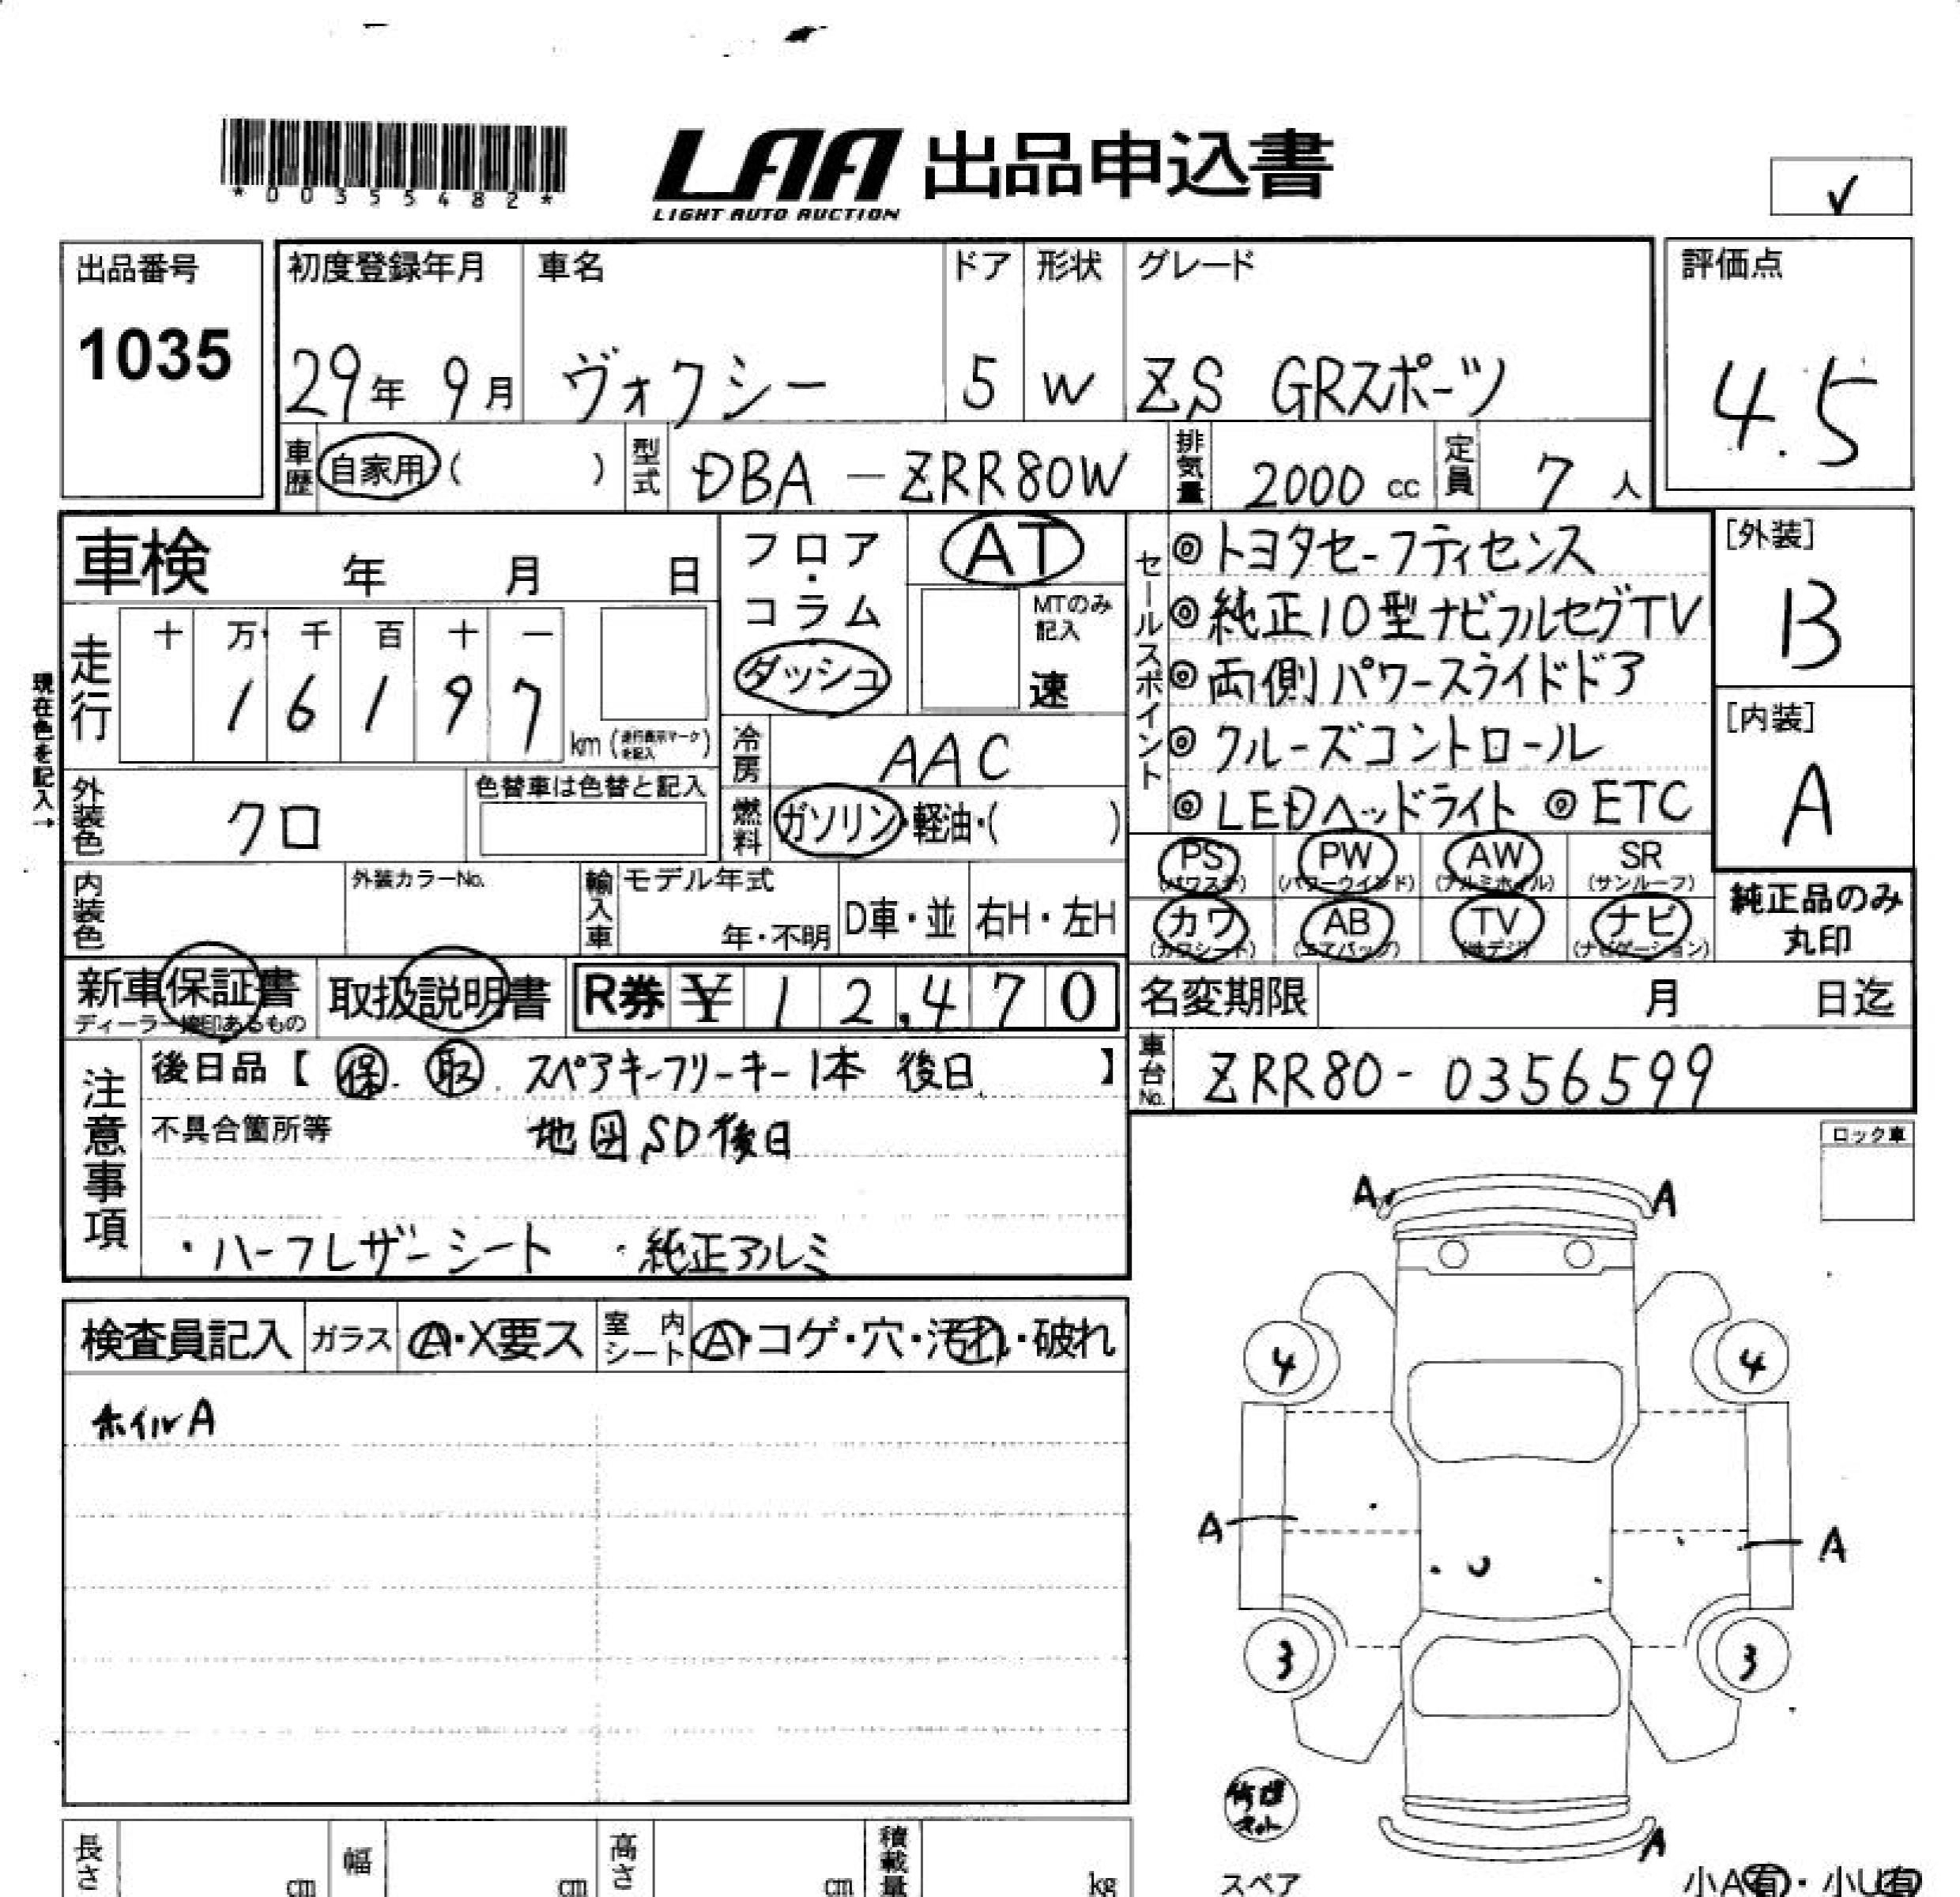 *00355482*
LAA 出品申込書
LIGHT AUTO AUCTION
✓
出品番号
1035
初度登録年月 車名 ドア 形状 グレード
29年 9月 ヴォクシー 5 W ZS GRスポーツ
評価点
4.5
車歴 自家用( ) 型式 DBA-ZRR80W 排気量 2000cc 定員 7人
車検 年 月 日
フロア・コラム
ダッシュ
AT
MTのみ記入
速
セールスポイント
◎トヨタセーフティセンス
◎純正10型ナビフルセグTV
◎両側パワースライドドア
◎クルーズコントロール
◎LEDヘッドライト ◎ETC
[外装]
B
[内装]
A
現在色を記入→
走行
十 万 千 百 十 一
1 6 1 9 7
km(走行表示マークを記入)
冷房 AAC
外装色 クロ 色替車は色替と記入
燃料 ガソリン・軽油・( )
PS (パワステ) PW (パワーウインド) AW (アルミホイル) SR (サンルーフ)
カワ (カワシート) AB (エアバッグ) TV (地デジ) ナビ (ナビゲーション)
純正品のみ
丸印
内装色 外装カラーNo. 輸入車 モデル年式 年・不明 D車・並 右H・左H
新車保証書 取扱説明書 R券 ¥12,470
ディーラー捺印あるもの
名変期限 月 日迄
車台No. ZRR80-0356599
注意事項
後日品【 保. 取. スペアキーフリーキー1本 後日 】
不具合箇所等 地図SD後日
・ハーフレザーシート ・純正アルミ
ロック車
検査員記入 ガラス A・X要ス 室内シート A・コゲ・穴・汚れ・破れ
ホイルA
A A
4 4
A A
3 3
A
修理キット
スペア
小A有・小U有
長さ cm 幅 cm 高さ cm 積載量 kg